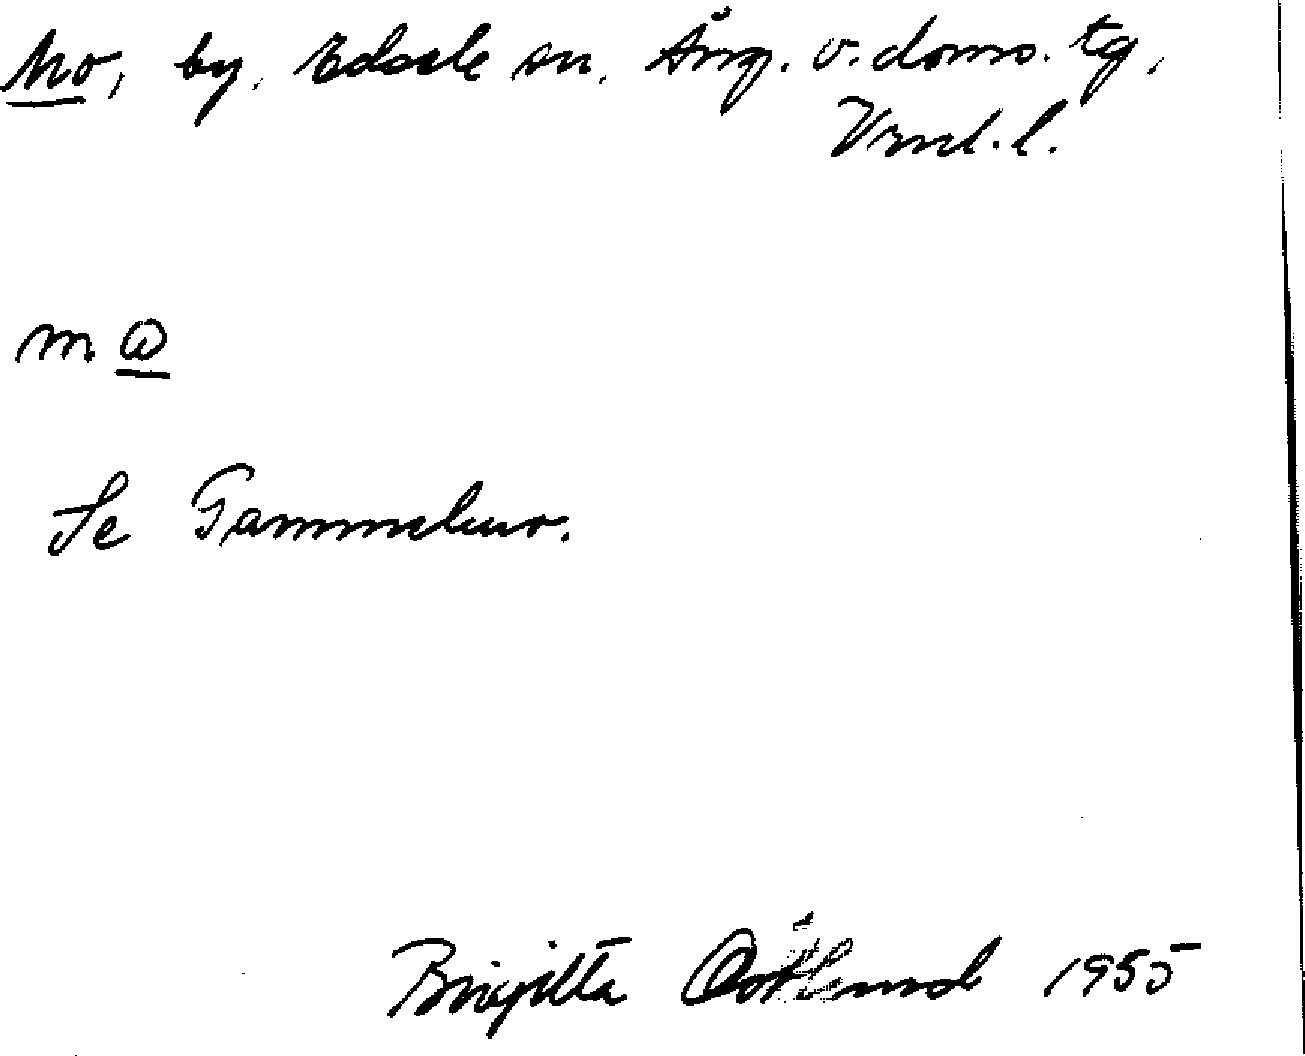 Mo, by, Edsele sn. Ång. v. doms. tg,
Vrnl. l.
m ω
Se Gammelmo.
Birgitta Östlund 1955